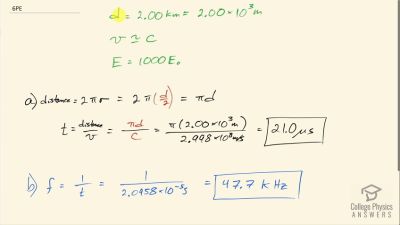 6PE
d = 2.00 km = 2.00 × 10³ m
v ≃ c
E = 1000 E₀
a) distance = 2πr = 2π(d/2) = πd
t = distance/v = πd/c = π(2.00×10³m)/2.998×10⁸m/s = 21.0 µs
b) f = 1/t = 1/2.0958×10⁻⁵s = 47.7 kHz
College Physics
ANSWERS